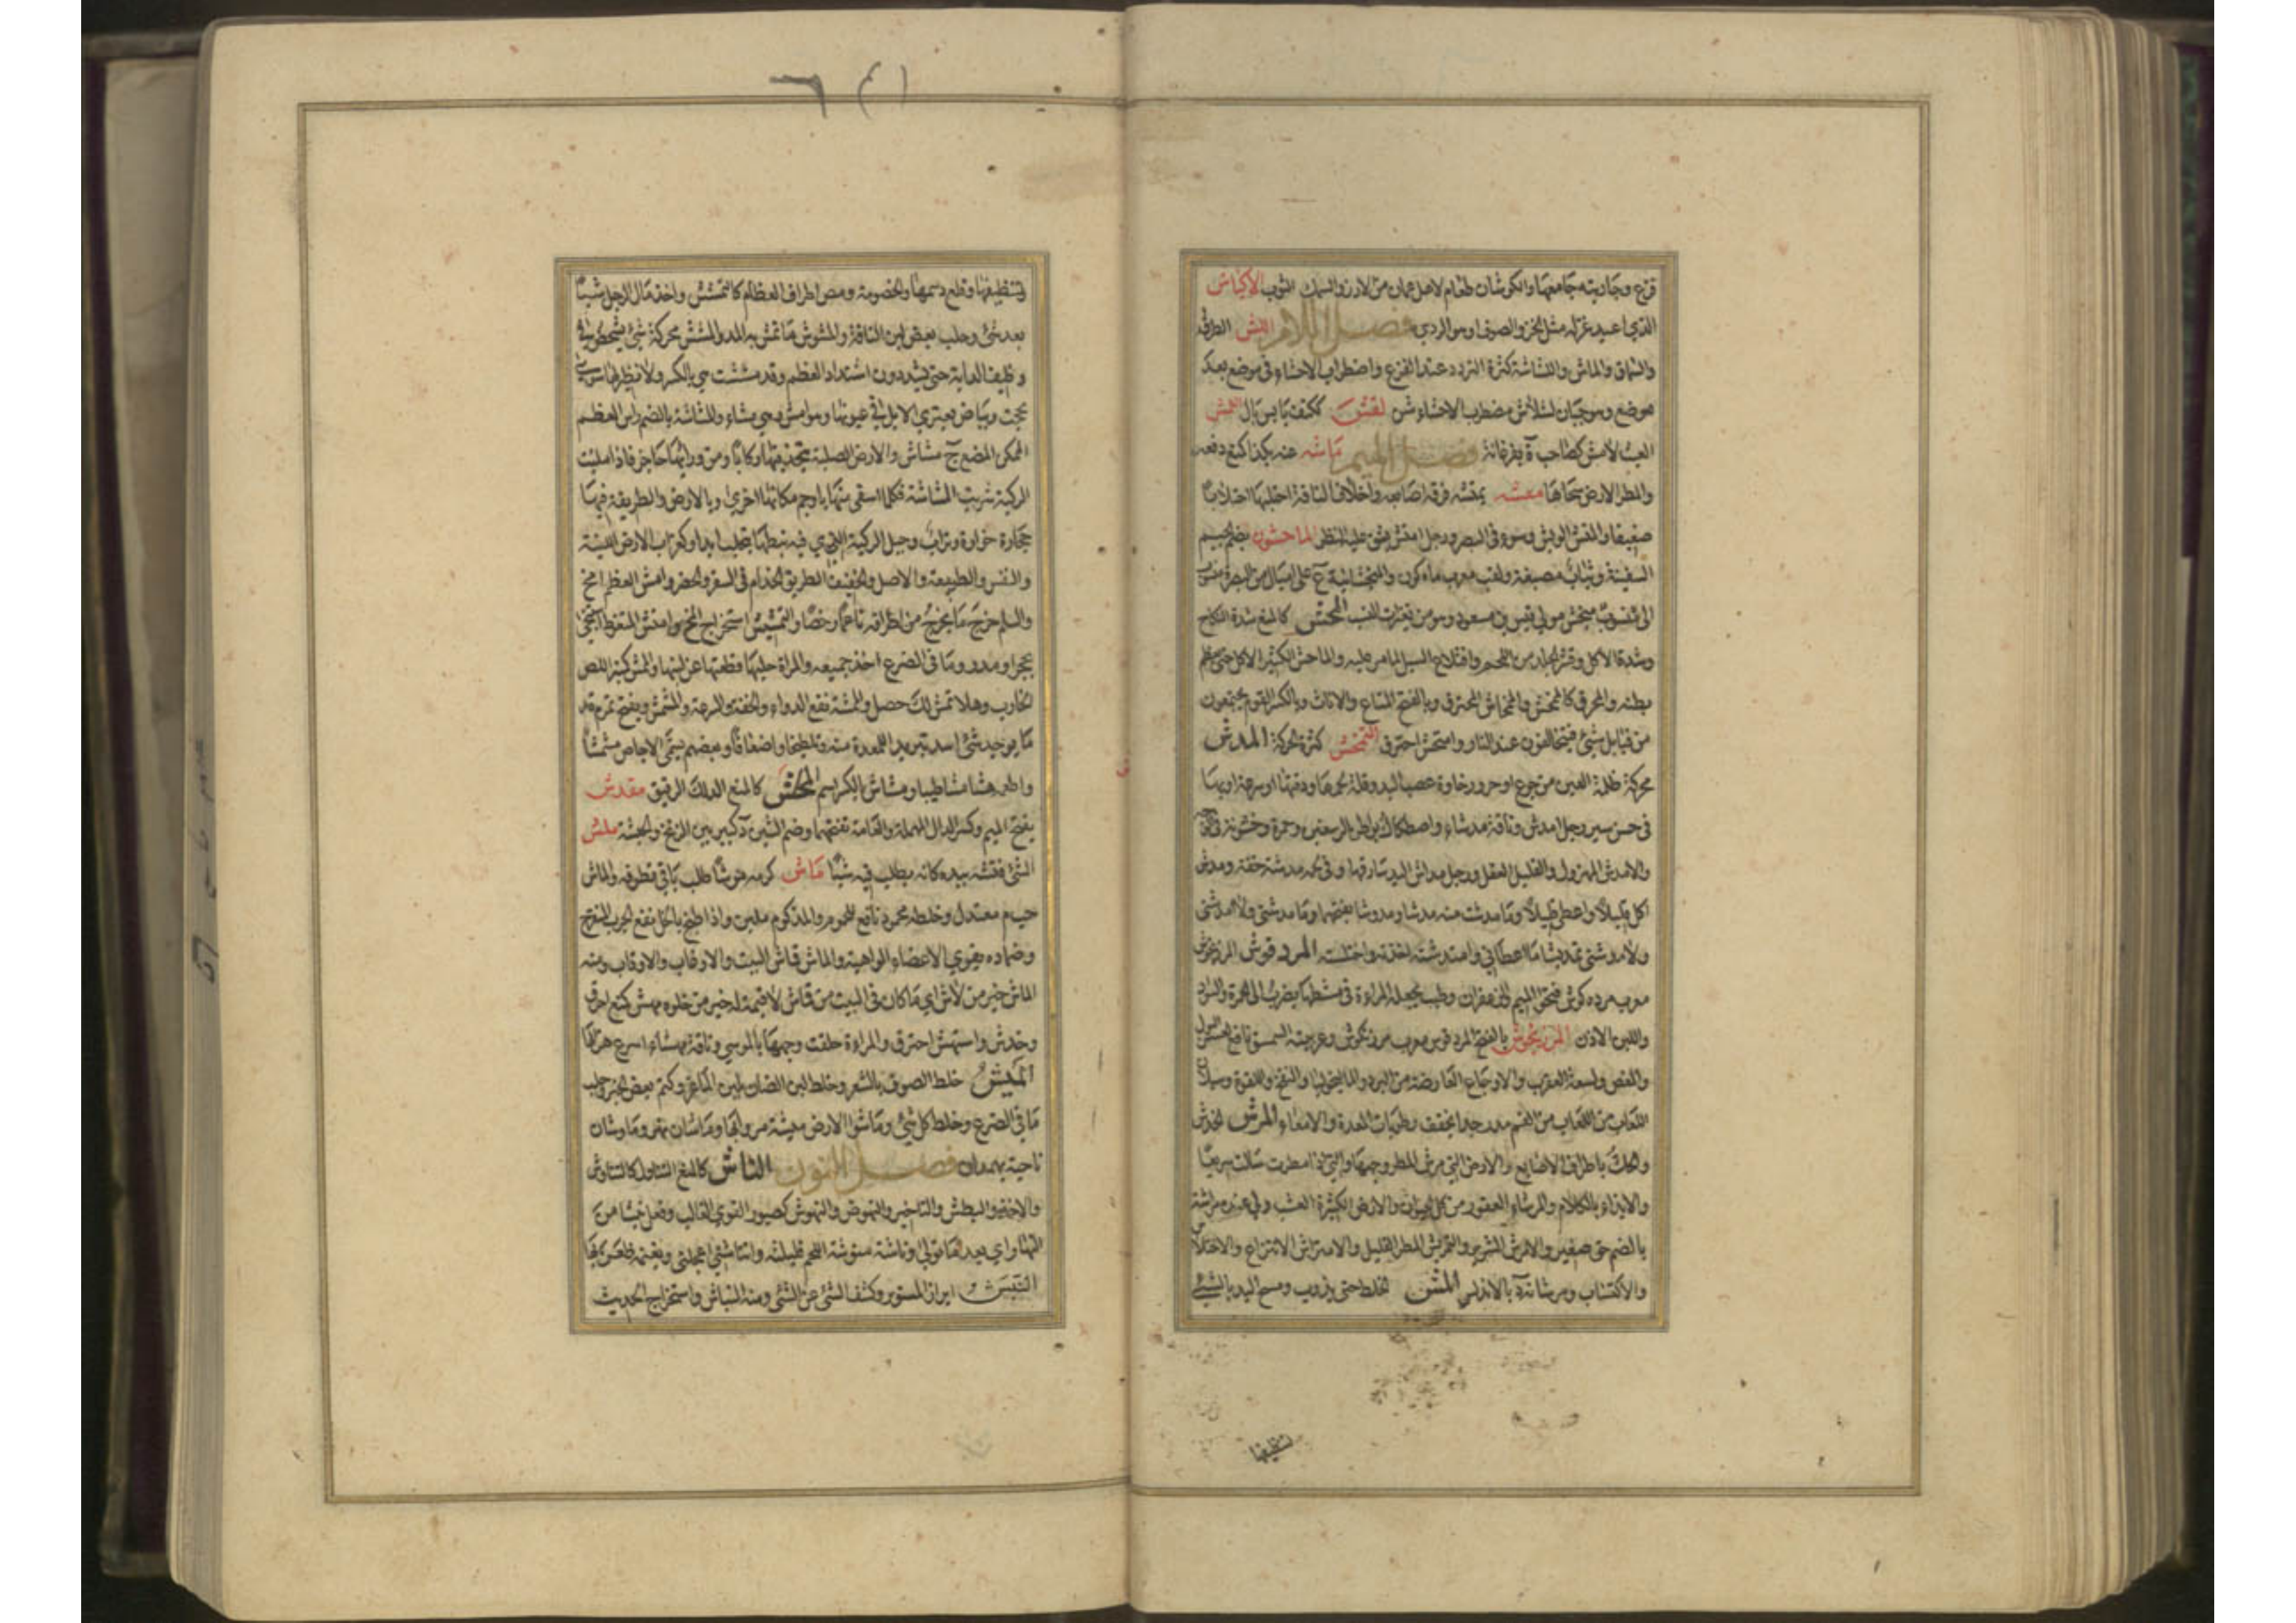 فزع وجاريته جامعها والكوشان طعام لاهل عمان من الارز والسمك الثوب الاكياش
الذي اعيد غزله مثل الخز والصوف او هو الردي فصل اللام اللش الطرد
والسماق والماش واللشلشة كثرة التردد عند الفزع واضطراب الاحشاء في موضع بعد
موضع وهو جبان لشلاش مضطرب الاحشاء لقش
العبث لامش كصاحب ة بفرغانة فصل الميم ماشه عنه بكذا كمنع دفعه
والمطر الارض سحاها متشه يمتشه فرقه باصابعه واخلاف الناقة احتلبها احتلابا
ضعيفا والمتش الوبش وسوء في البصر ورجل امتش يشق عليه النظر الماجشون بضم الجيم
السفينة وثياب مصبغة ولقب معرب ماه كون والمنجشانية ع على اميال من البصرة
الى منجش مولى قيس بن مسعود المحش كالمنع شدة النكاح
وشدة الاكل وقشر الجلد من اللحم واقتلاع السيل لما مر عليه والماحش الكثير الاكل حتى يعظم
بطنه والمحرق كالممحش والمحاش المحترق وبالفتح المتاع والاثاث وبالكسر القوم يجتمعون
من قبايل شتى فيتحالفون عند النار وامتحش احترق التمخش كثرة الحركة المدش
محركة ظلمة العين من جوع او حر ورخاوة عصب اليد وقلة لحمها ودقتها او سرعة اوبها
في حسن سير رجل امدش وناقة مدشاء واصطكاك بواطن الرسغين وحمرة وخشونة في
والامدش المهزول والقليل العقل ورجل مداش اليد سارقها وفي لحمه مدشة خفة ومدش
اكل قليلا واعطى قليلا وما مدشت منه مدشا ومدوشا بفتحهما وما مدشني ولا امدشني
ولا مدشني تمديشا ما اعطاني وامتدشته اخذته واختلسته المرد قوش المرزنجوش
معرب مرده كوش فتحوا الميم والزعفران وطيب تجعله المراة في مشطها يضرب الى الحمرة والسواد
واللين الاذن المرزنجوش بالفتح المردقوش معرب مرزنكوش وعربيته السمسق نافع لعسر البول
والمغص ولسعة العقرب والاوجاع العارضة من البرد والماليخوليا والنفخ واللقوة وسيلان
اللعاب من الفم مدر جدا يجفف رطوبات المعدة والامعاء المرش الخدش
والحك باطراف الاصابع والارض التي مرش المطر وجهها والتي اذا مطرت سالت سريعا
والايذاء بالكلام والمرشاء العقور من كل الحيوان والارض الكثيرة العشب ولي عنده مراشة
بالضم حق صغير والامرش الشرير والتمريش المطر القليل والامتراش الانتزاع والاختلاس
والاكتساب ومرشانة د بالاندلس المش الخلط حتى يذوب ومسح اليد بالشيء
تنظيفها
لتنظيفها وقطع دسمها والخصومة ومص اطراف العظام كالتمشش واخذ مال الرجل شيئا
بعد شئ وحلب بعض لبن الناقة والمشوش ما تمش به اليد والمشش محركة شئ يشخص في
وظيف الدابة حتى يشتد دون اشتداد العظم وقد مششت هي بالكسر ولا نظير لها سوى
لححت وبياض يعتري الابل في عيونها وهو امش وهي مشاء والمشاشة بالضم راس العظم
الممكن المضغ ج مشاش والارض الصلبة تتخذ فيها ركايا ومن ورائها حاجز فاذا ملئت
الركية شربت المشاشة فكلما استقي منها دلو جم مكانها اخرى والارض والطريقة فيها
حجارة خوارة وتراب وجبل الركية الذي فيه نبطها يتحلب ابدا وكغراب الارض اللينة
والنفس والطبيعة والاصل والخفيف الظريق الخدام في السفر والحضر وامش العظم امخ
والسلم خرج ما يخرج من اطرافه ناعما رخصا والتمشيش استخراج المخ وامتش المتغوط استنجى
بحجر او مدر وما في الضرع اخذ جميعه والمراة حليها قطعتها عن لبتها والممتش اللص
الخارب وهلا تمش لك حصل والمشمشة نقع الدواء والخفة والسرعة والمشمش ويفتح ثمر م قل
ما يوجد شئ اشد تبريدا للمعدة منه وتلطيخا واضعافا وبعضهم يسمى الاجاص مشمشا
واطعمه هشا مشا طيبا ومشاش بالكسر اسم كالمنع الدلك الرفيق مقدش
بفتح الميم وكسر الدال المهملة والعامة تفتحها وضم الشين د كبير بين الزنج والحبشة ملش
الشئ فتشه بيده كانه يطلب فيه شيئا ماش كرمه موشا طلب باقي قطوفه والماش
حب م معتدل وخلطه محمود نافع للمحموم والمزكوم ملين واذا طبخ بالخل نفع الجرب المتقرح
وضماده يقوي الاعضاء الواهية والماش قماش البيت والاوقاب والاوقاب ومنه
الماش خير من لاش اي ما كان في البيت من قماش لا قيمة له خير من خلوه مهش كمنع احرق
وخدش وامتهش احترق والمراة حلقت وجهها بالموسي وناقة مهشاء اسرع هزالها
الميش خلط الصوف بالشعر وخلط لبن الضان بلبن الماعز وكتم بعض الخبر وحلب
ما في الضرع وخلط كل شئ وماشوا الارض ميشة مروا بها وماشان نهر وماوشان
ناحية بهمدان فصل النون الناش كالمنع التناول كالتناوش
والاخذ والبطش والتاخير والنهوض والنهوش كصبور القوي الغالب وفعل نئيشا من
النهار اي بعد ما تولى وناشه
النبش ابراز المستور وكشف الشئ عن الشئ ومنه النباش واستخراج الحديث